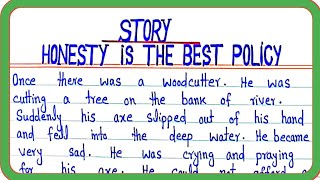 STORY
HONESTY IS THE BEST POLICY
Once there was a woodcutter. He was
cutting a tree on the bank of river.
Suddenly his axe slipped out of his hand
and fell into the deep water. He became
very sad. He was crying and praying
for his axe. He could not afford a